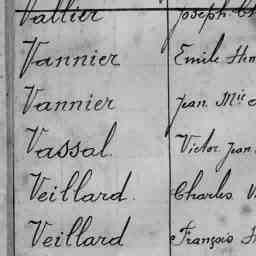 Vallier Joseph
Vannier Emile
Vannier Jean Mie
Vassal Victor Jean
Veillard Charles
Veillard François